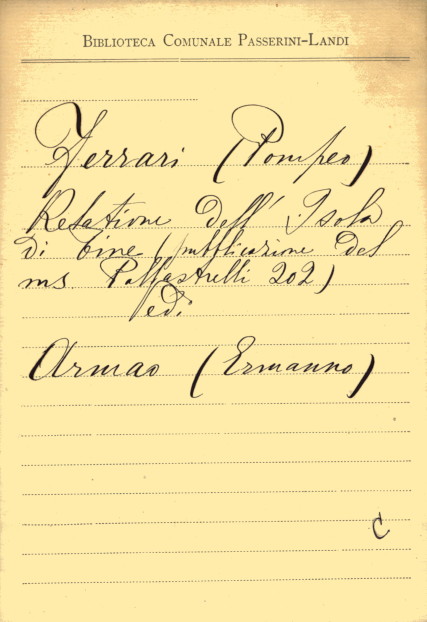 BIBLIOTECA COMUNALE PASSERINI-LANDI
Ferrari (Pompeo)
Relatione dell' Isola
di Tine (pubblicazione del
ms. Pallastrelli 202)
Vedi
Armao (Ermanno)
C